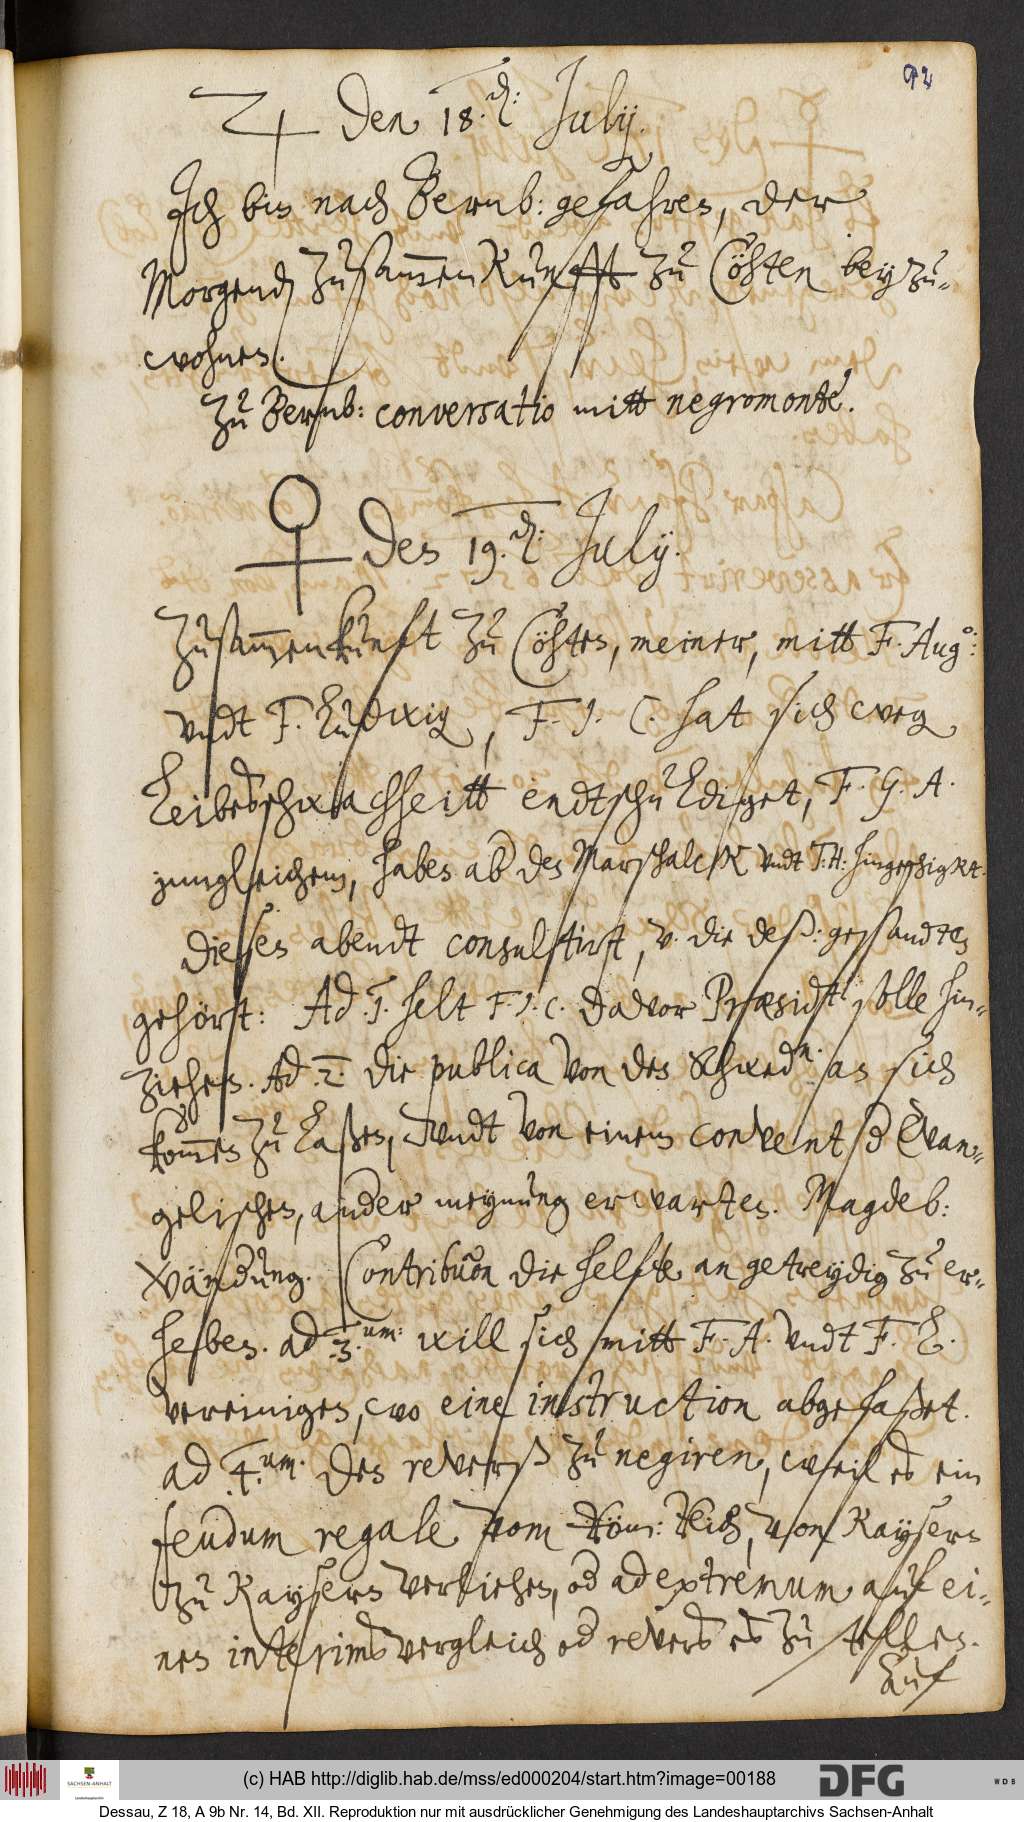 92
♃ den 18.den: July.
Ich bin nach Bernb: gefahren, der
Morgend zusammenkunfft zu Cöhten beyzu„
wohnen.
Zu Bernb: conversatio mitt negromonte.
♀ den 19.den: July.
Zusammenkunft zu Cöhten, meiner, mitt F. Augo:
vndt F. Ludwig, F. J. C. hat sich weg
Leibesschwachheitt endtschuldiget, F. G. A.
jmgleichem, haben ab den Marschalck vndt T. H. hingeschigkt.
Diesen abendt consultirt, v. die deß: gesandten
gehört: Ad .1. helt F. J. C. davor Præsidt solle hin„
ziehen. Ad .2. die publica von den Schwedn. an sich
kommen zu laßen, vndt von einem convent d Evan„
gelischen, ander meynung erwarten. Magdeb:
Contribuon die helfte an getreydig zu er„
heben. ad .3.um: will sich mitt F. A. vndt F. L.
vereinigen, wo eine instruction abgefaßet.
ad .4.um. den reverß zu negiren, weil es ein
feudum regale vom Röm: Reich, von Kaysern
zu Kaysern verliehen, od ad extremum auf ei„
nen interims vergleich od revers es zu stellen.
Auf
(c) HAB http://diglib.hab.de/mss/ed000204/start.htm?image=00188
SACHSEN-ANHALT
DFG
WDB
Dessau, Z 18, A 9b Nr. 14, Bd. XII. Reproduktion nur mit ausdrücklicher Genehmigung des Landeshauptarchivs Sachsen-Anhalt